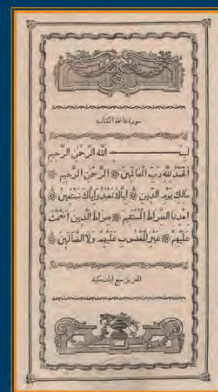 سورة فاتحة الكتاب
بسم الله الرحمن الرحيم
الحمد لله رب العالمين ۞ الرحمن الرحيم ۞
مالك يوم الدين ۞ اياك نعبد واياك نستعين ۞
اهدنا الصراط المستقيم ۞ صراط الذين انعمت
عليهم ۞ غير المغضوب عليهم ولا الضالين ۞